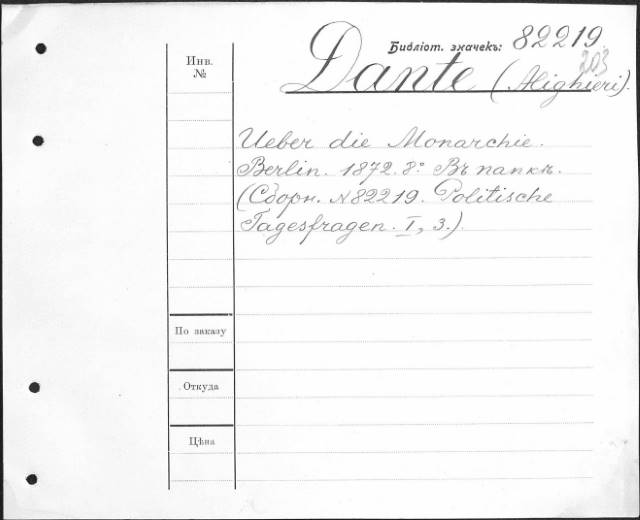 Библіот. значекъ: 82219
203
Инв.
№
Dante (Alighieri).
Ueber die Monarchie.
Berlin. 1872. 8° Въ папкѣ.
(Сборн. №82219. Politische
Tagesfragen. I, 3.)
По заказу
Откуда
Цѣна